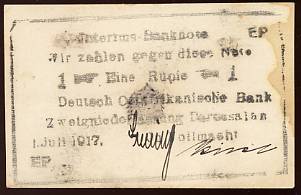 Interims-Banknote EP
Wir zahlen gegen diese Note
1 Eine Rupie 1
Deutsch Ostafrikanische Bank
Zweigniederlassung Daressalam
1. Juli 1917. Vollmacht
EP